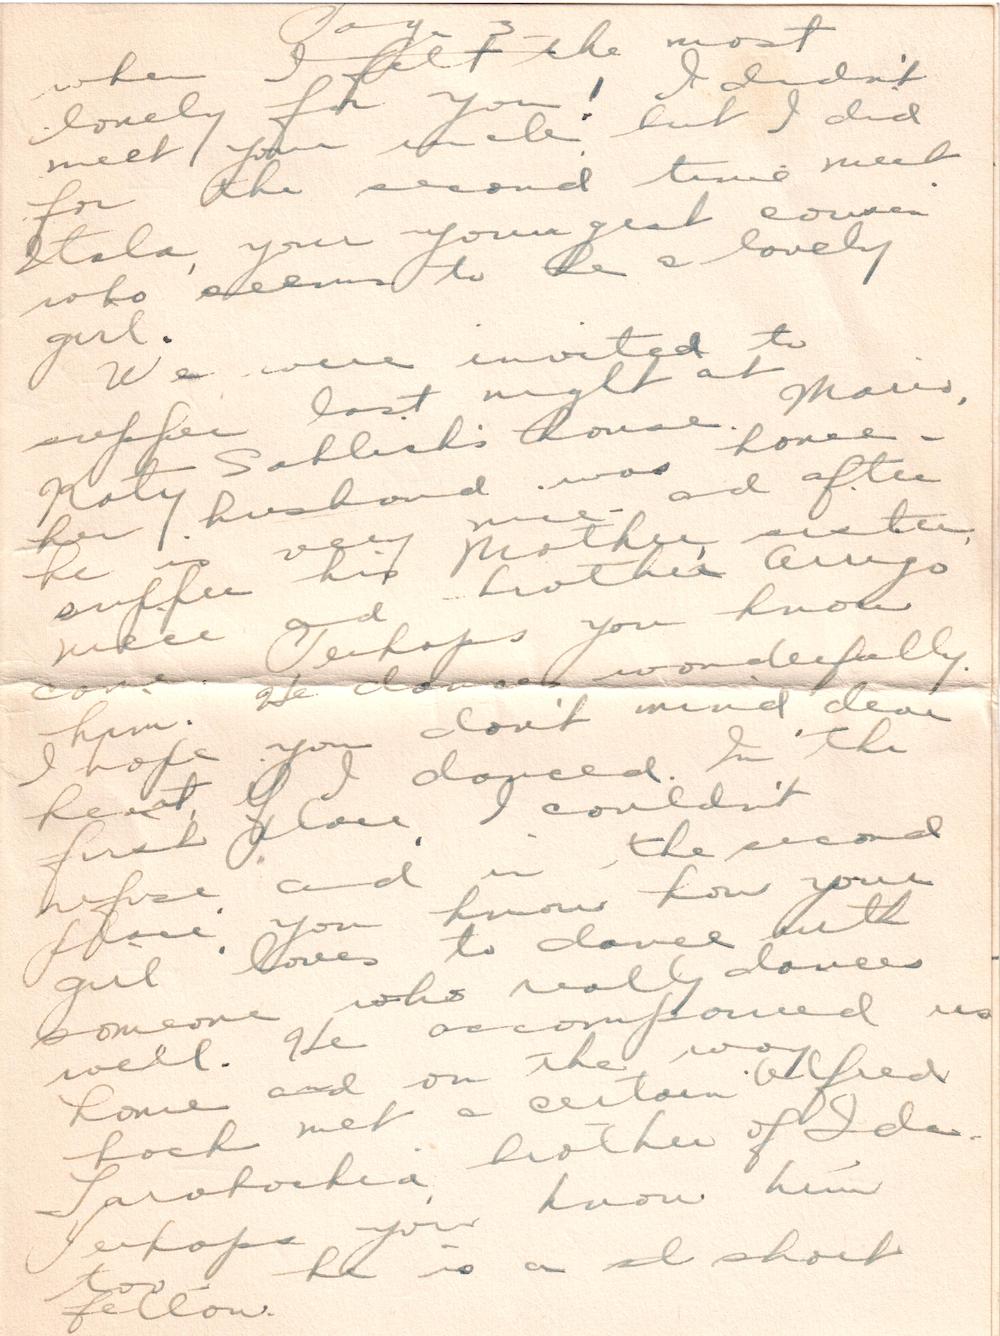 Page 3
when I felt the most
lonely for you! I didn't
meet your uncle, but I did
for the second time meet
Itala, your youngest cousin
who seems to be a lovely
girl.
We were invited to
supper last night at
Katy Sablich's house. Mario,
her husband was home -
he is very nice - ad after
supper his Mother, sister,
niece ad brother Arrigo
came. Perhaps you know
him. He dances wonderfully.
I hope you don't mind, dear
heart, if I danced. In the
first place, I couldn't
refuse and in the second
place, you know how your
girl loves to dance with
someone who really dances
well. He accompanied us
home and on the way
back met a certain Alfred
brother of Ida.
Perhaps you know him
too - he is a short
fellow.